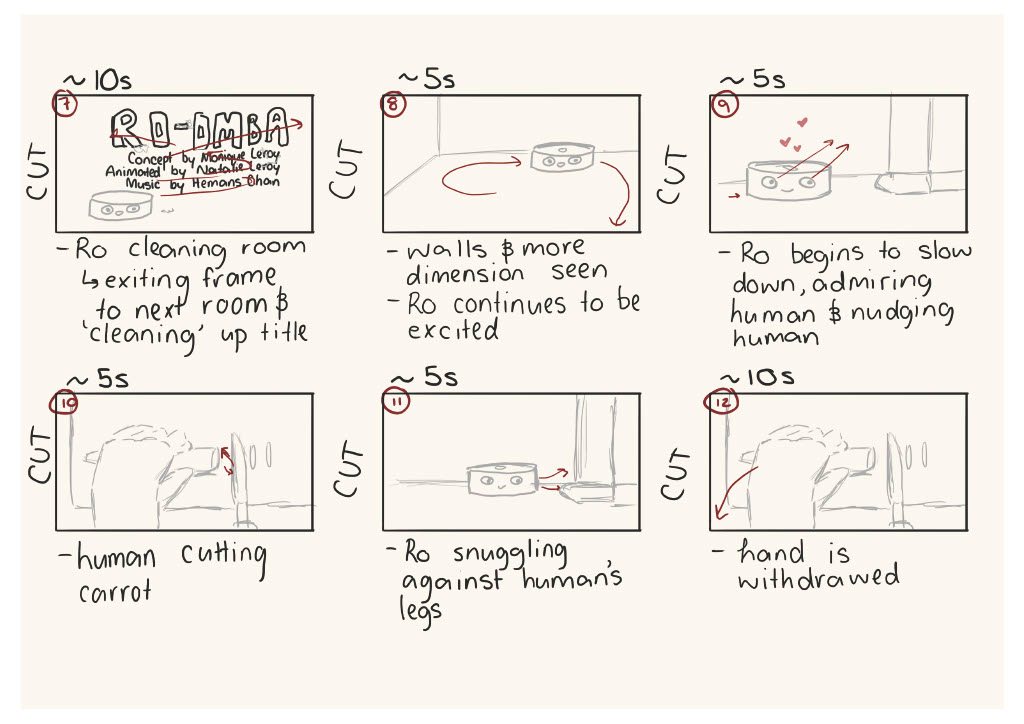 ~ 10s
7
CUT
RO-OMBA
Concept by Monique Leroy
Animated by Natalie Leroy
Music by Hemans Chan
- Ro cleaning room
↳ exiting frame
to next room &
'cleaning' up title
~ 5s
8
CUT
- walls & more
dimension seen
- Ro continues to be
excited
~ 5s
9
CUT
- Ro begins to slow
down, admiring
human & nudging
human
~ 5s
10
CUT
- human cutting
carrot
~ 5s
11
CUT
- Ro snuggling
against human's
legs
~ 10s
12
CUT
- hand is
withdrawed